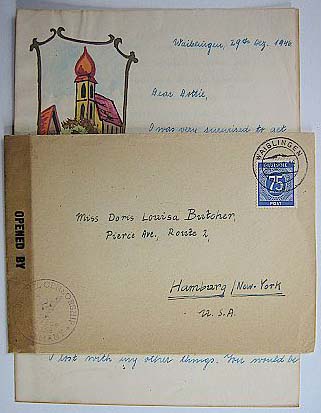 Waiblingen, 29th Dez. 1946
Dear Dottie,
I was very surprised to get
WAIBLINGEN
DEUTSCHE
75
POST
OPENED BY
Miss Doris Louisa Butcher,
Pierce Ave, Route 2,
Hamburg / New-York
U. S. A.
I lost with my other things. You would be